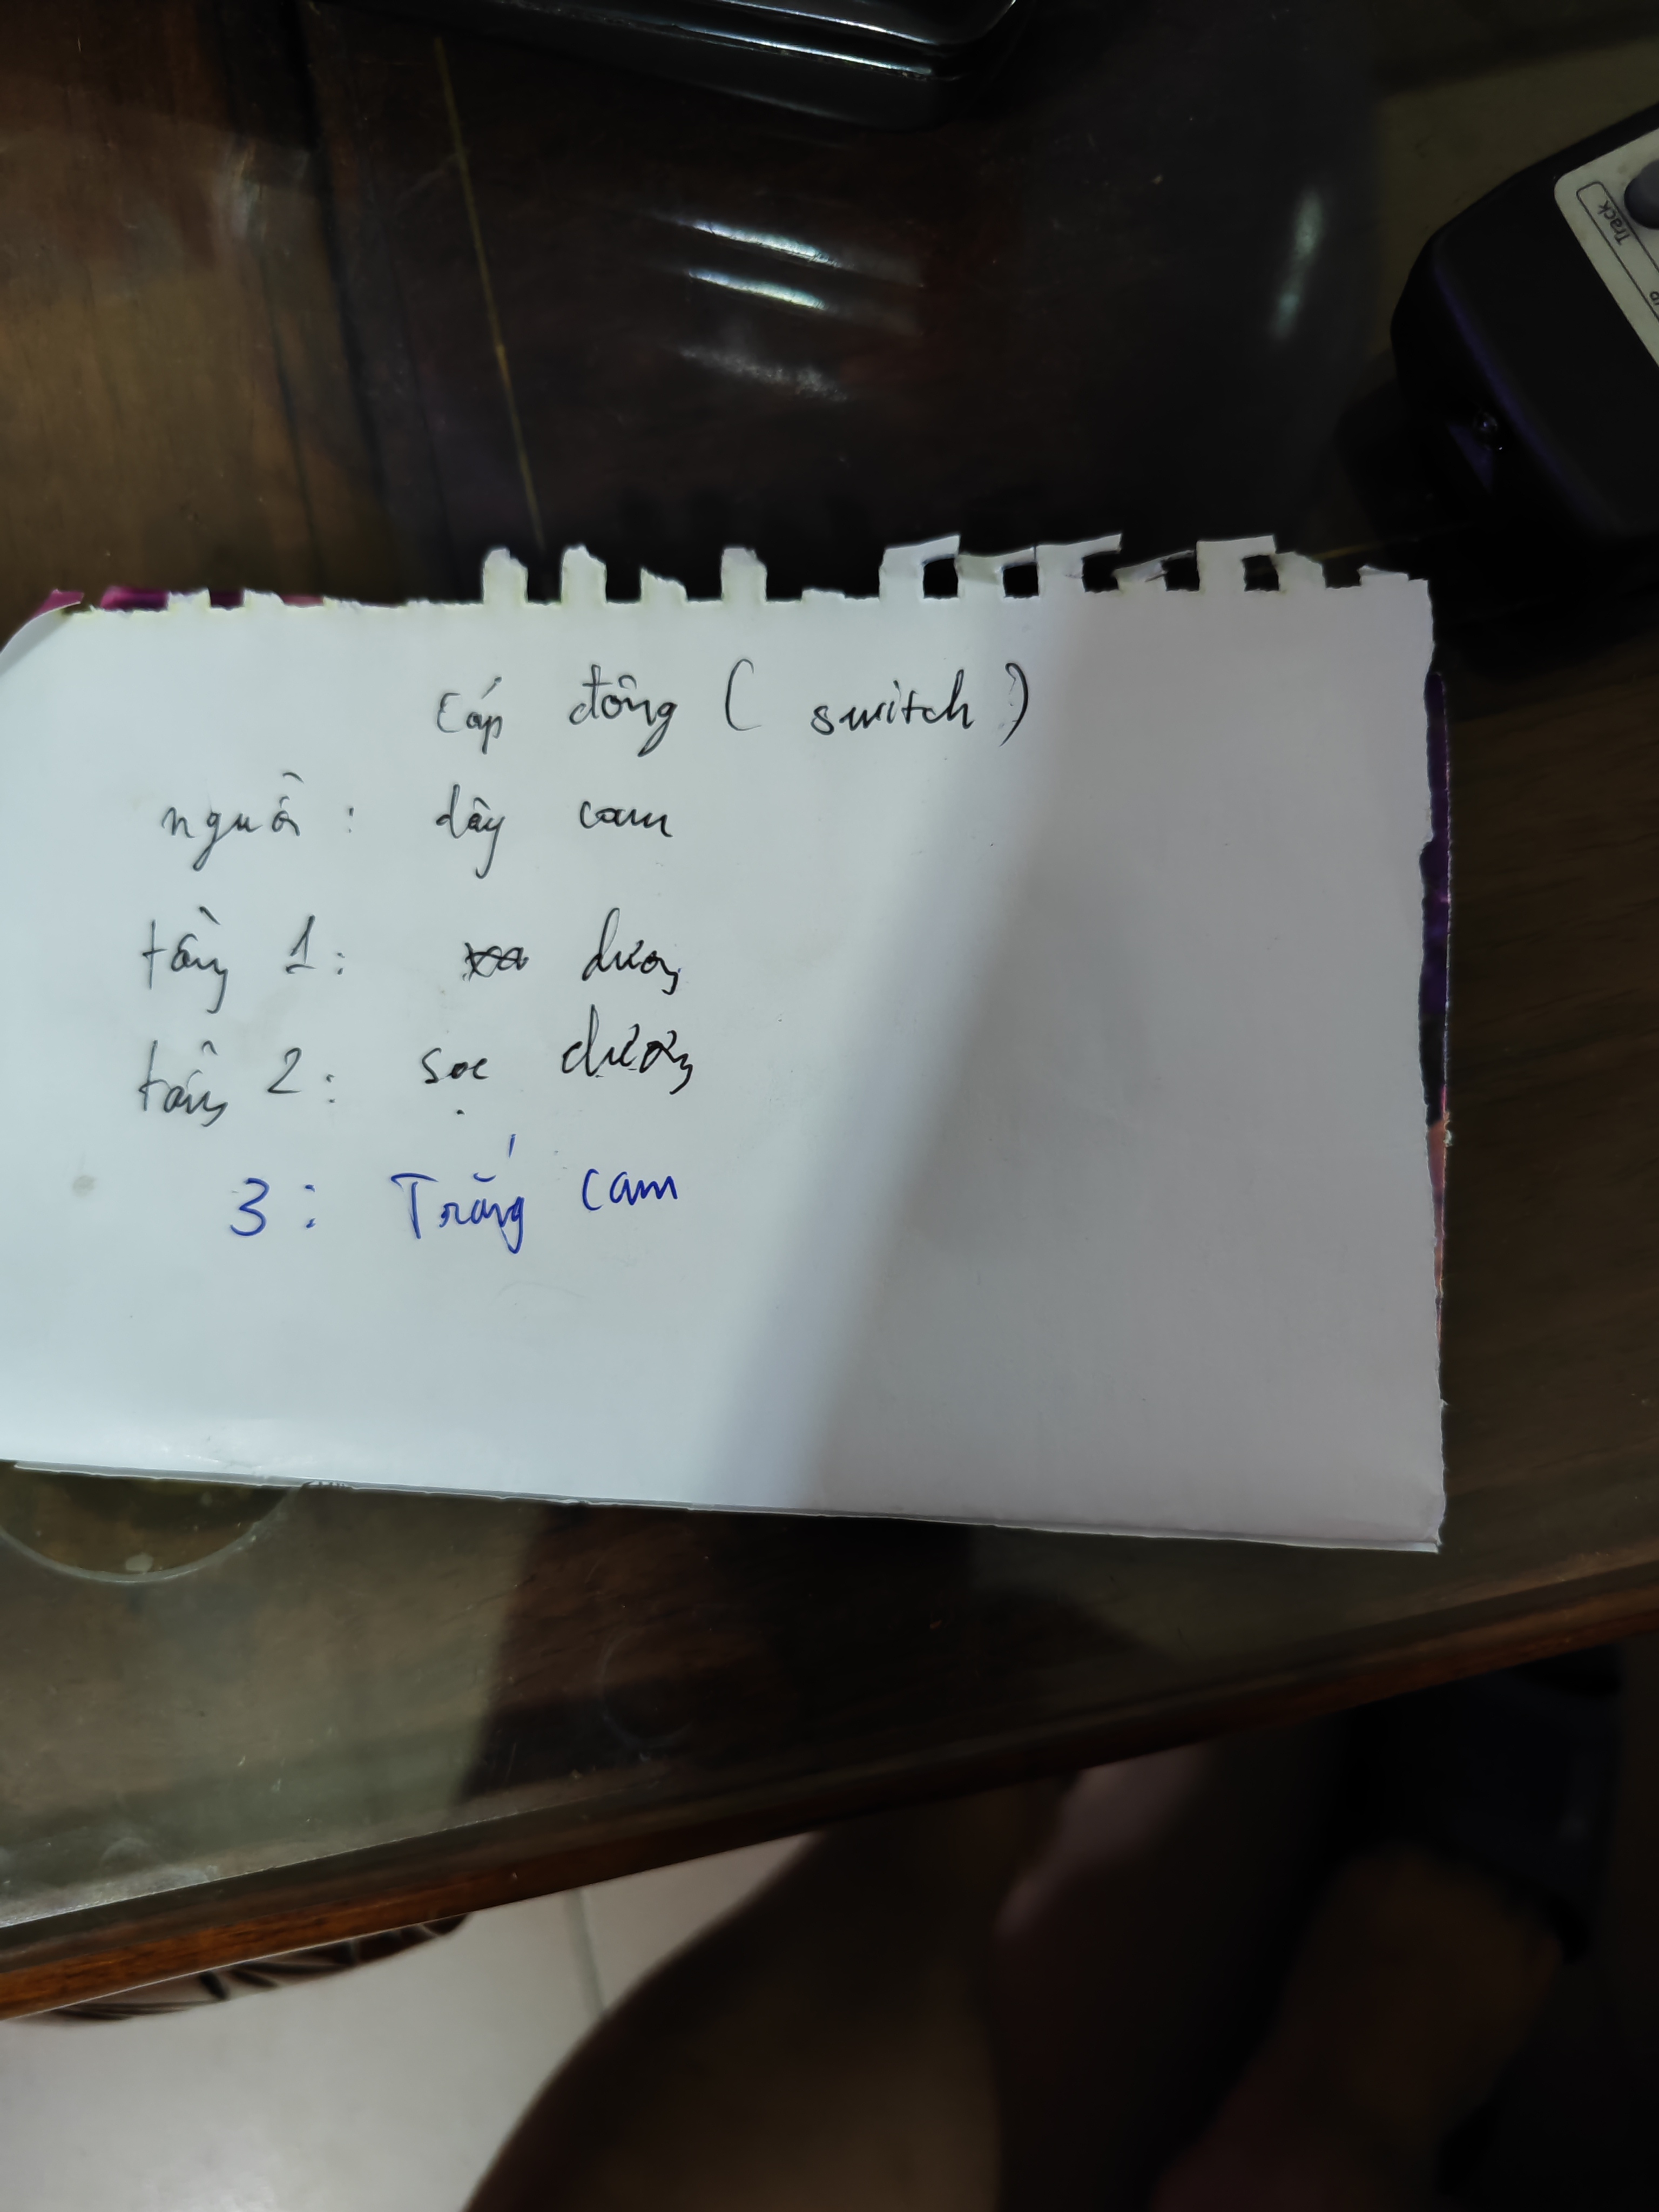 Cáp đồng ( switch )
nguồ : dây cam
tầng 1 : dương
tầng 2 : sọc dương
3 : Trắng cam
Track